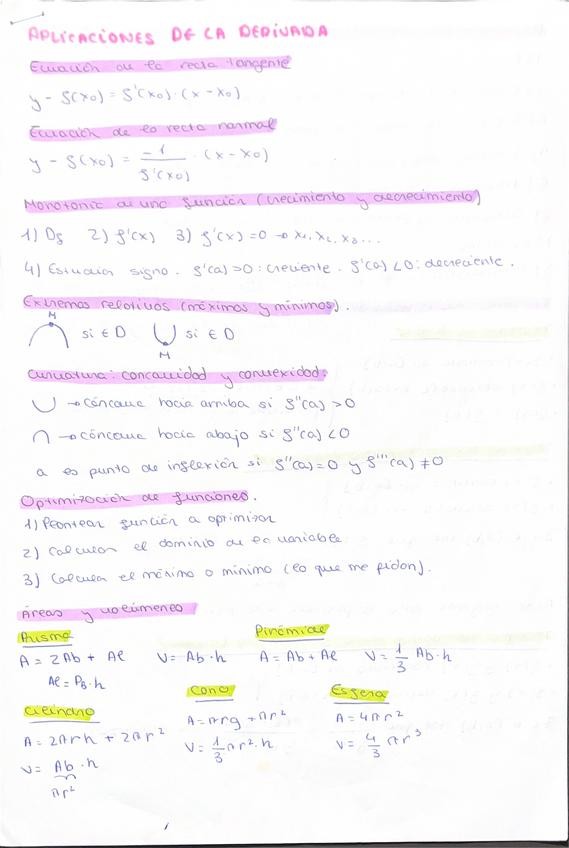 APLICACIONES DE LA DERIVADA
Ecuación de la recta tangente
y - f(x₀) = f'(x₀) · (x - x₀)
Ecuación de la recta normal
y - f(x₀) = -1/f'(x₀) · (x - x₀)
Monotonía de una función (crecimiento y decrecimiento)
1) Df 2) f'(x) 3) f'(x) = 0 → x₁, x₂, x₃...
4) Estudiar signo. f'(a) > 0: creciente. f'(a) < 0: decreciente.
Extremos relativos (máximos y mínimos).
M si ∈ D M si ∈ D
Curvatura: concavidad y convexidad.
∪ → cóncava hacia arriba si f''(a) > 0
∩ → cóncava hacia abajo si f''(a) < 0
a es punto de inflexión si f''(a) = 0 y f'''(a) ≠ 0
Optimización de funciones.
1) Plantear función a optimizar
2) Calcular el dominio de la variable
3) Calcular el máximo o mínimo (lo que me pidan).
Áreas y volúmenes
Prisma Pirámide
A = 2Ab + Al V = Ab · h A = Ab + Al V = 1/3 Ab · h
Al = PB · h
Cilindro Cono Esfera
A = 2πrh + 2πr² A = πrg + πr² A = 4πr²
V = Ab · h V = 1/3 πr² · h V = 4/3 πr³
πr²